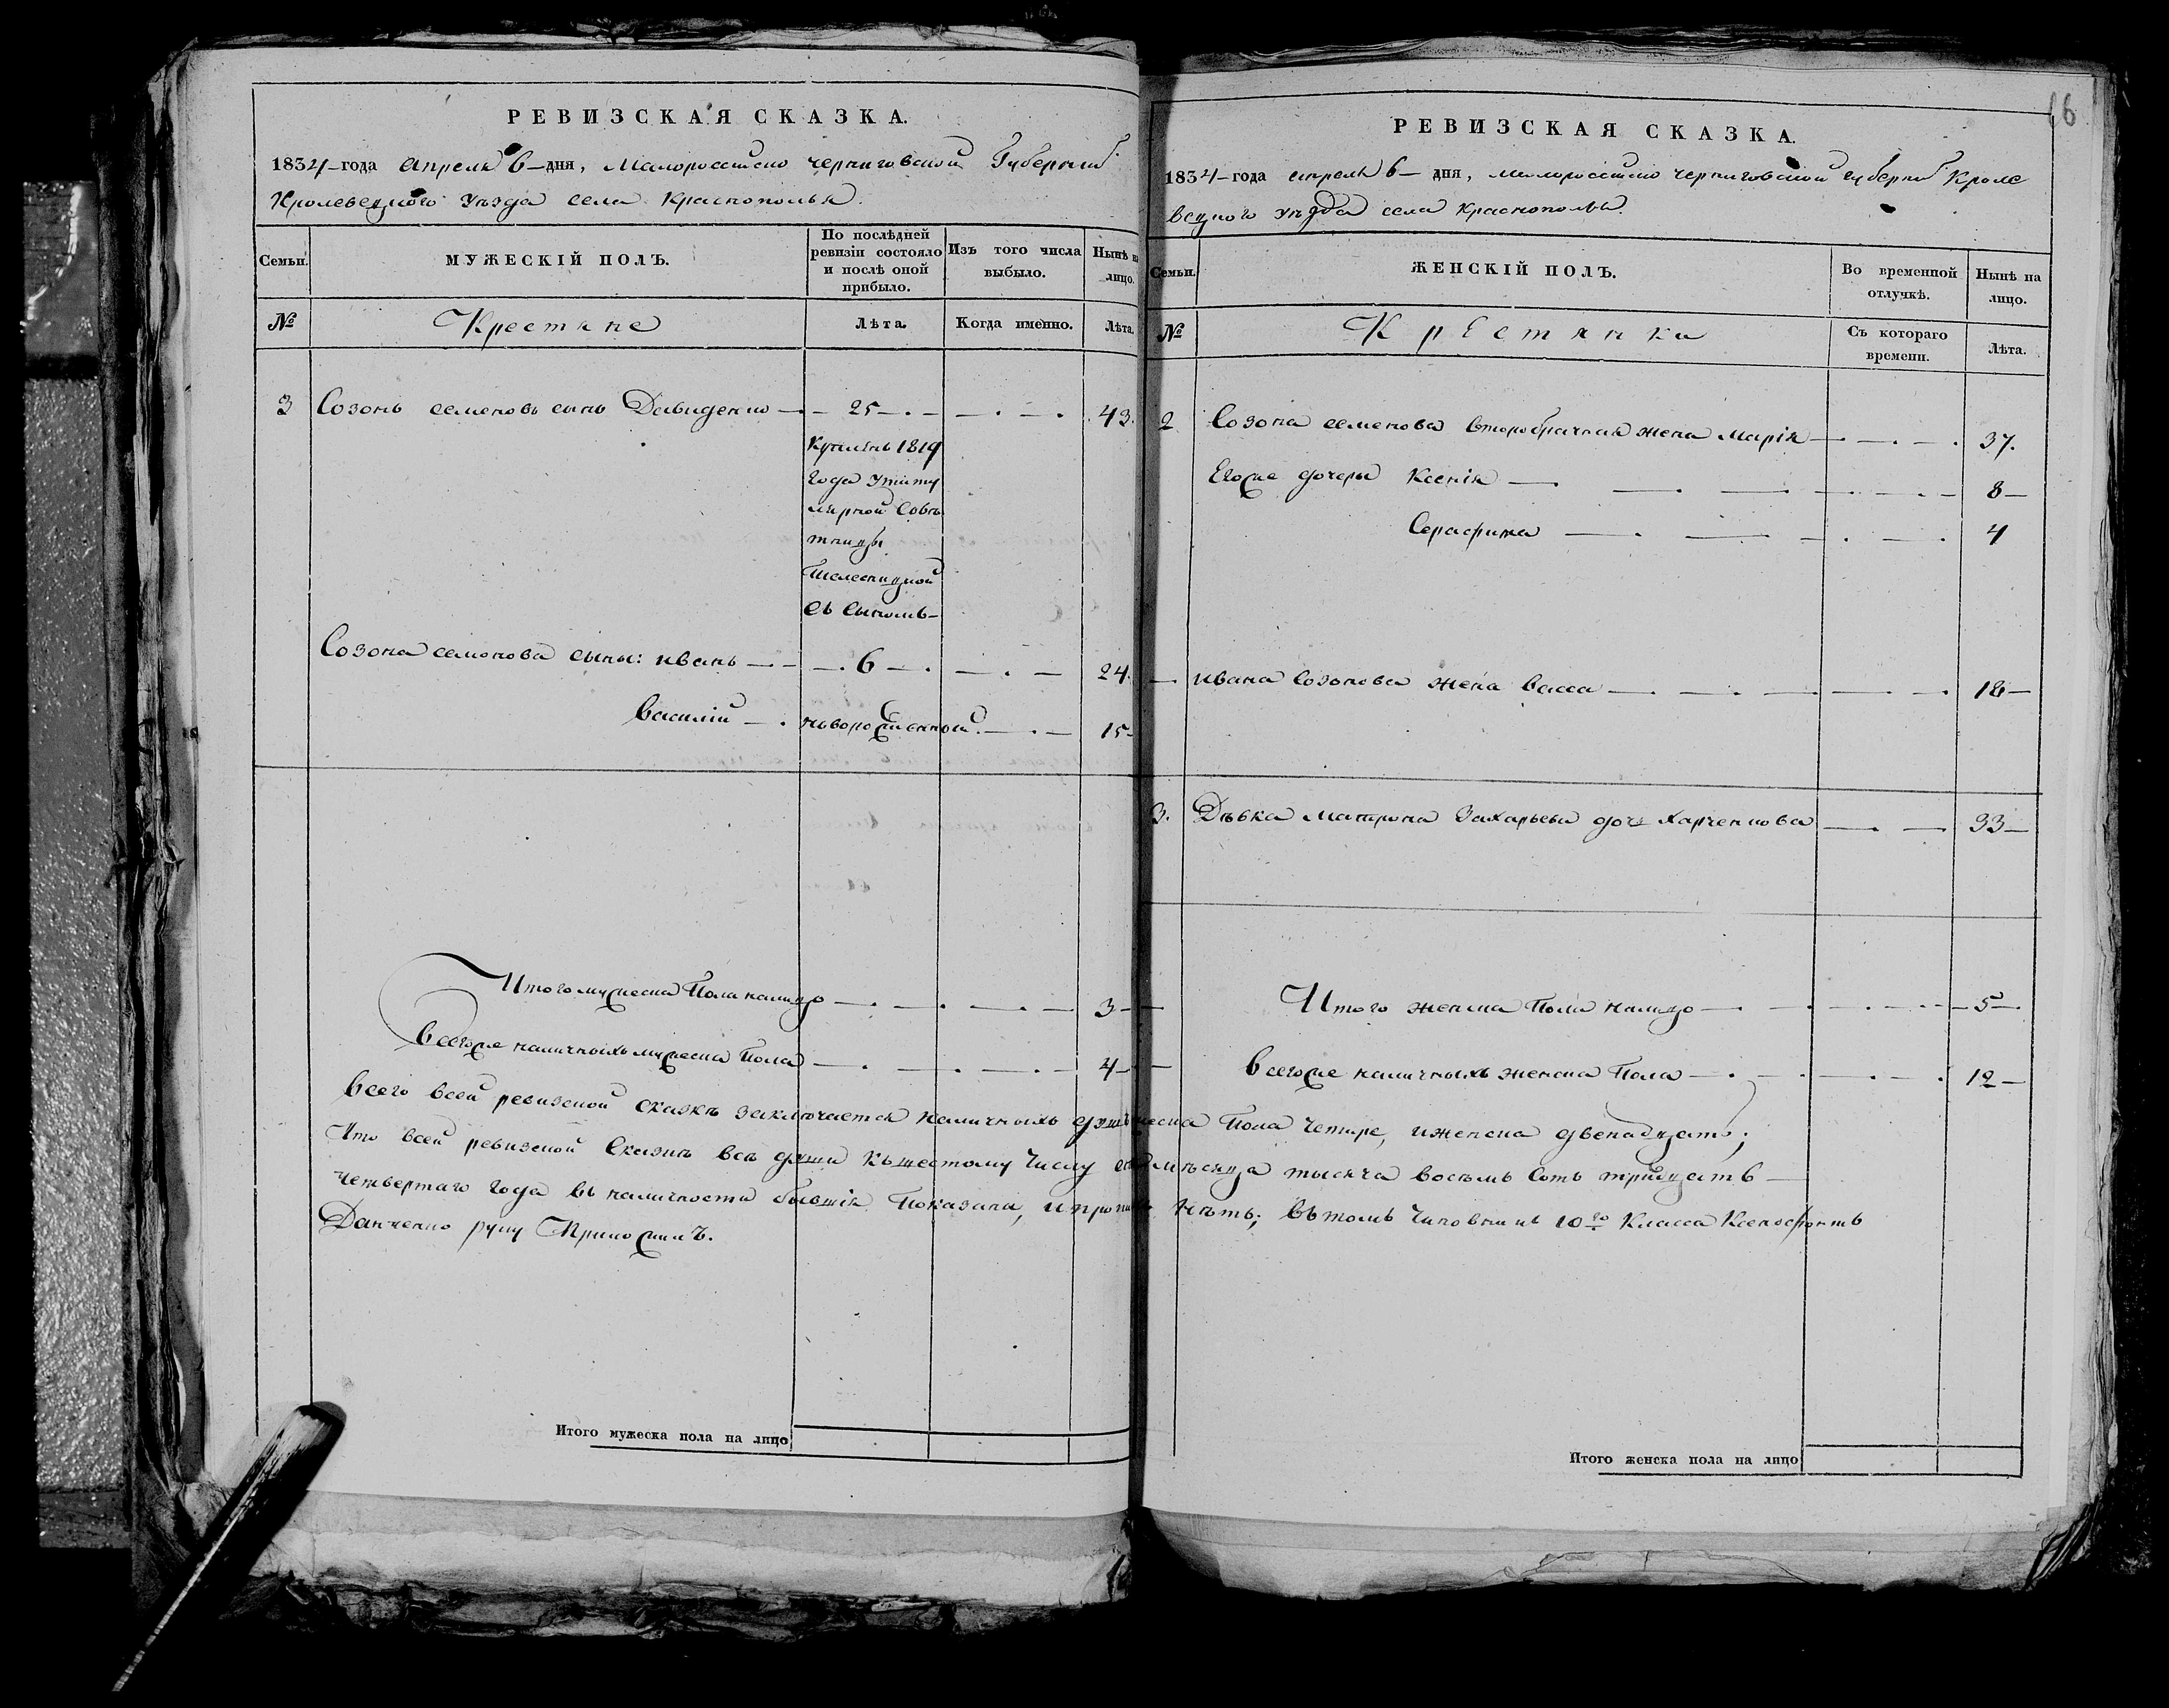 РЕВИЗСКАЯ СКАЗКА.
1834-года апреля 6-дня, Малороссийско черниговской Губернии
Кролевецкого уезда села Краснополья.
Семьи.
МУЖЕСКІЙ ПОЛЪ.
По послѣдней ревизіи состояло и послѣ оной прибыло.
Изъ того числа выбыло.
Нынѣ на лицо.
№
Крестяне
Лѣта.
Когда именно.
Лѣта.
3 Созонъ семеновъ сынъ Давиденко — 25 — 43.
купленъ 1819
года
Совѣ
тницы
съ сыномъ
Созона семенова сыны: иванъ — 6 — 24.
василій — новорожденной — 15
Итого мужеска пола налицо — 3
всегоже наличныхъ мужеска пола — 4
РЕВИЗСКАЯ СКАЗКА.
16
1834-года апреля 6 — дня, малороссийско черниговской губерни Кроле
вецкого уезда села краснополья.
Семьи.
ЖЕНСКІЙ ПОЛЪ.
Во временной отлучкѣ.
Нынѣ на лицо.
№
Крестянки
Съ котораго времени.
Лѣта.
2 Созона семенова второбрачная жена марія — 37.
Егоже дочеры Ксенія — 8
Серафима — 4
ивана Созонова жена васса — 18
3. Дѣвка матрона Захарьева дочь харченкова — 33
Итого женска пола налицо — 5
всегоже наличныхъ женска пола — 12
всего всей ревизской сказкѣ заключается наличныхъ душъ мужеска пола четыре, иженска двенадцать;
Что всей ревизской Сказкѣ всѣ души къшестому числу сего мѣсяца тысяча восемь сотъ тридцать
четвертаго года въ наличности бывшія показани, и прописныхъ нѣтъ; вътомъ чиновникъ 10го Класса Ксенофонтъ
Данченко руку приложилъ.
Итого мужеска пола на лицо
Итого женска пола на лицо